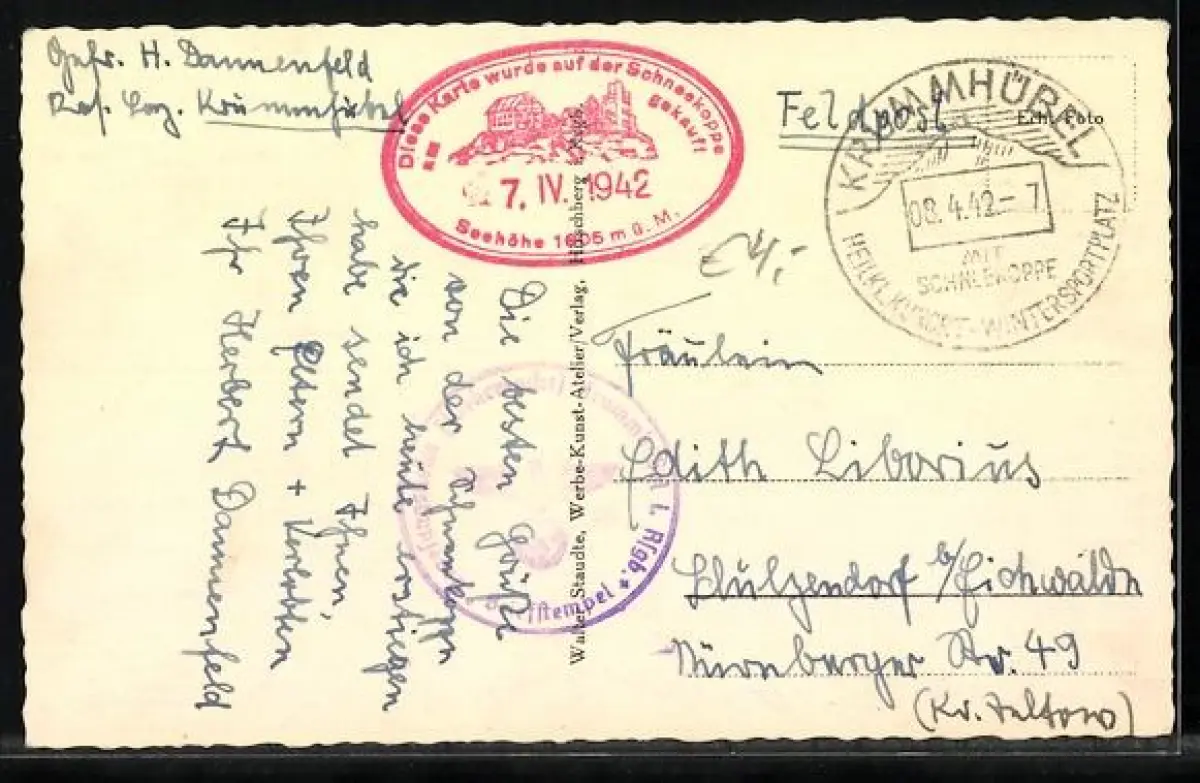 Gefr. H. Dannenfeld
Res. Laz. Krummhübel
Diese Karte wurde auf der Schneekoppe
am gekauft
7. IV. 1942
Seehöhe 1605 m ü. M.
Feldpost
Echt Foto
KRUMMHÜBEL
08.4.42–7
MIT
SCHNEEKOPPE
HEILKL. KURORT - WINTERSPORTPLATZ
€4,-
Die besten Grüße
von der Schneekoppe
die ich heute erstiegen
habe sendet Ihnen,
Ihren Eltern + Verlobten
Ihr Herbert Dannenfeld
Walter Staudte, Werbe-Kunst-Atelier/Verlag, Hirschberg i. Rsgb.
Krummhübel i. Rsgb. * Briefstempel *
Fräulein
Edith Liborius
Schulzendorf b/Eichwalde
Nürnberger Str. 49
(Kr. Teltow)